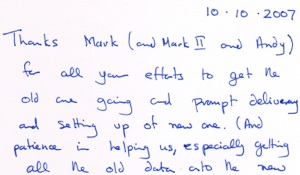 10·10·2007
Thanks Mark (and Mark II and Andy)
for all your efforts to get the
old one going and prompt delivery
and setting up of new one. (And
patience in helping us, especially getting
all the old data onto the new